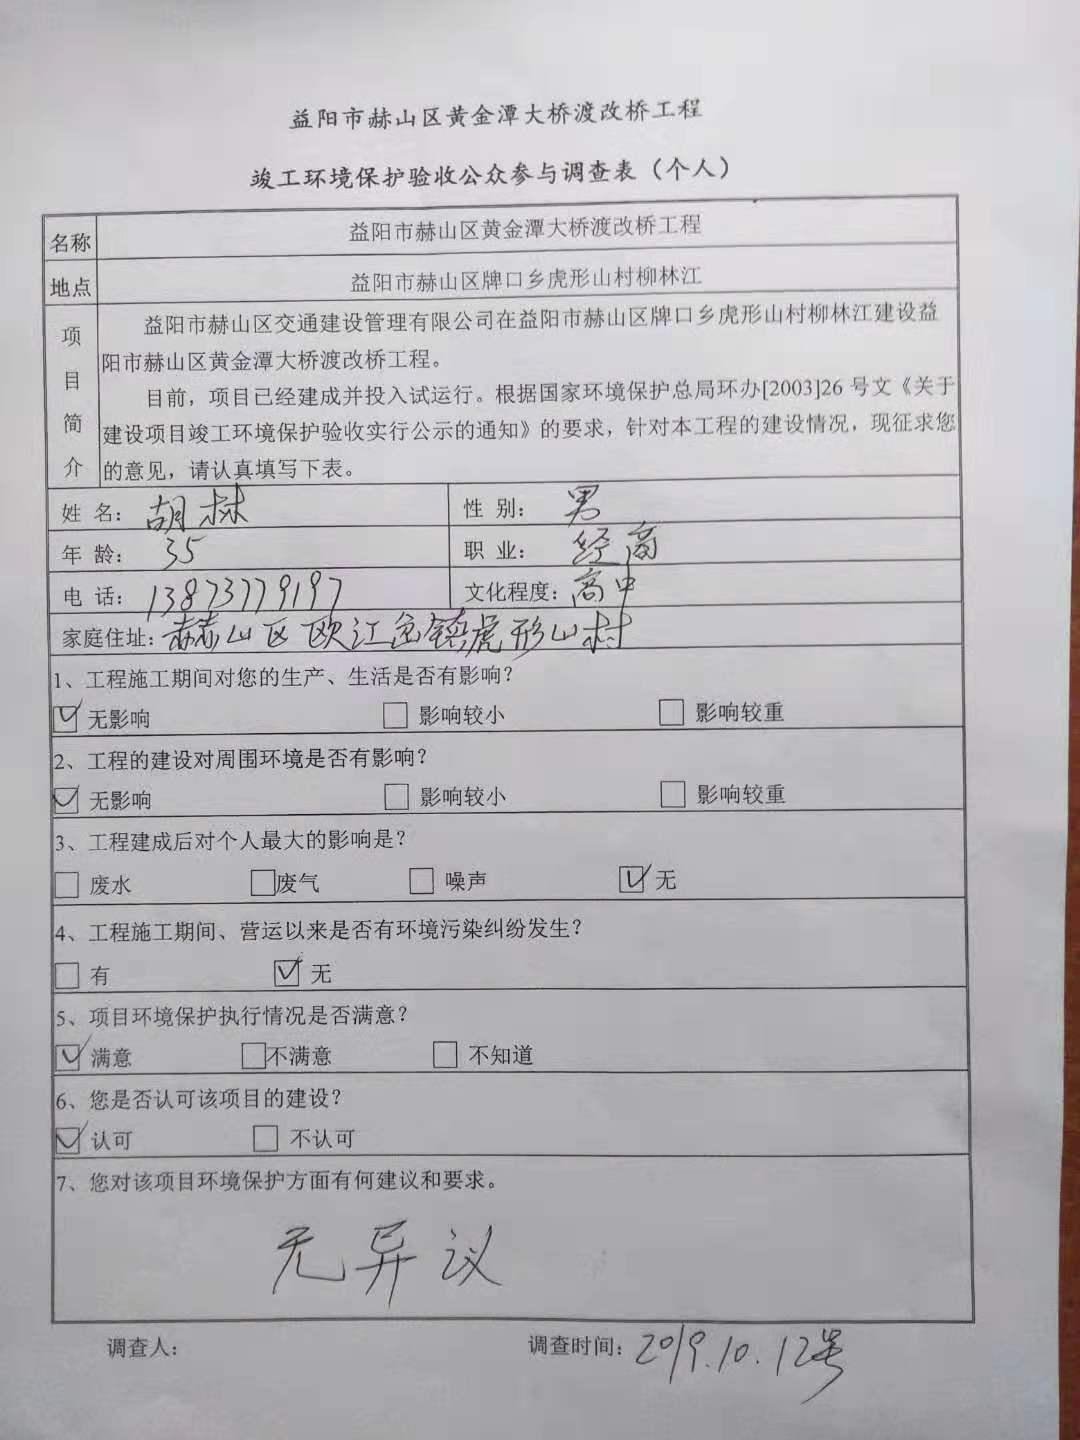 益阳市赫山区黄金潭大桥渡改桥工程
竣工环境保护验收公众参与调查表（个人）
名称 益阳市赫山区黄金潭大桥渡改桥工程
地点 益阳市赫山区牌口乡虎形山村柳林江
项目简介
益阳市赫山区交通建设管理有限公司在益阳市赫山区牌口乡虎形山村柳林江建设益
阳市赫山区黄金潭大桥渡改桥工程。
目前，项目已经建成并投入试运行。根据国家环境保护总局环办[2003]26 号文《关于
建设项目竣工环境保护验收实行公示的通知》的要求，针对本工程的建设情况，现征求您
的意见，请认真填写下表。
姓 名： 胡林 性 别： 男
年 龄： 35 职 业： 经商
电 话： 13873779197 文化程度：高中
家庭住址：赫山区欧江岔镇虎形山村
1、工程施工期间对您的生产、生活是否有影响？
☑ 无影响 □ 影响较小 □ 影响较重
2、工程的建设对周围环境是否有影响？
☑ 无影响 □ 影响较小 □ 影响较重
3、工程建成后对个人最大的影响是？
□ 废水 □废气 □ 噪声 ☑ 无
4、工程施工期间、营运以来是否有环境污染纠纷发生？
□ 有 ☑ 无
5、项目环境保护执行情况是否满意？
☑ 满意 □不满意 □ 不知道
6、您是否认可该项目的建设？
☑ 认可 □ 不认可
7、您对该项目环境保护方面有何建议和要求。
无异议
调查人： 调查时间：2019.10.12号